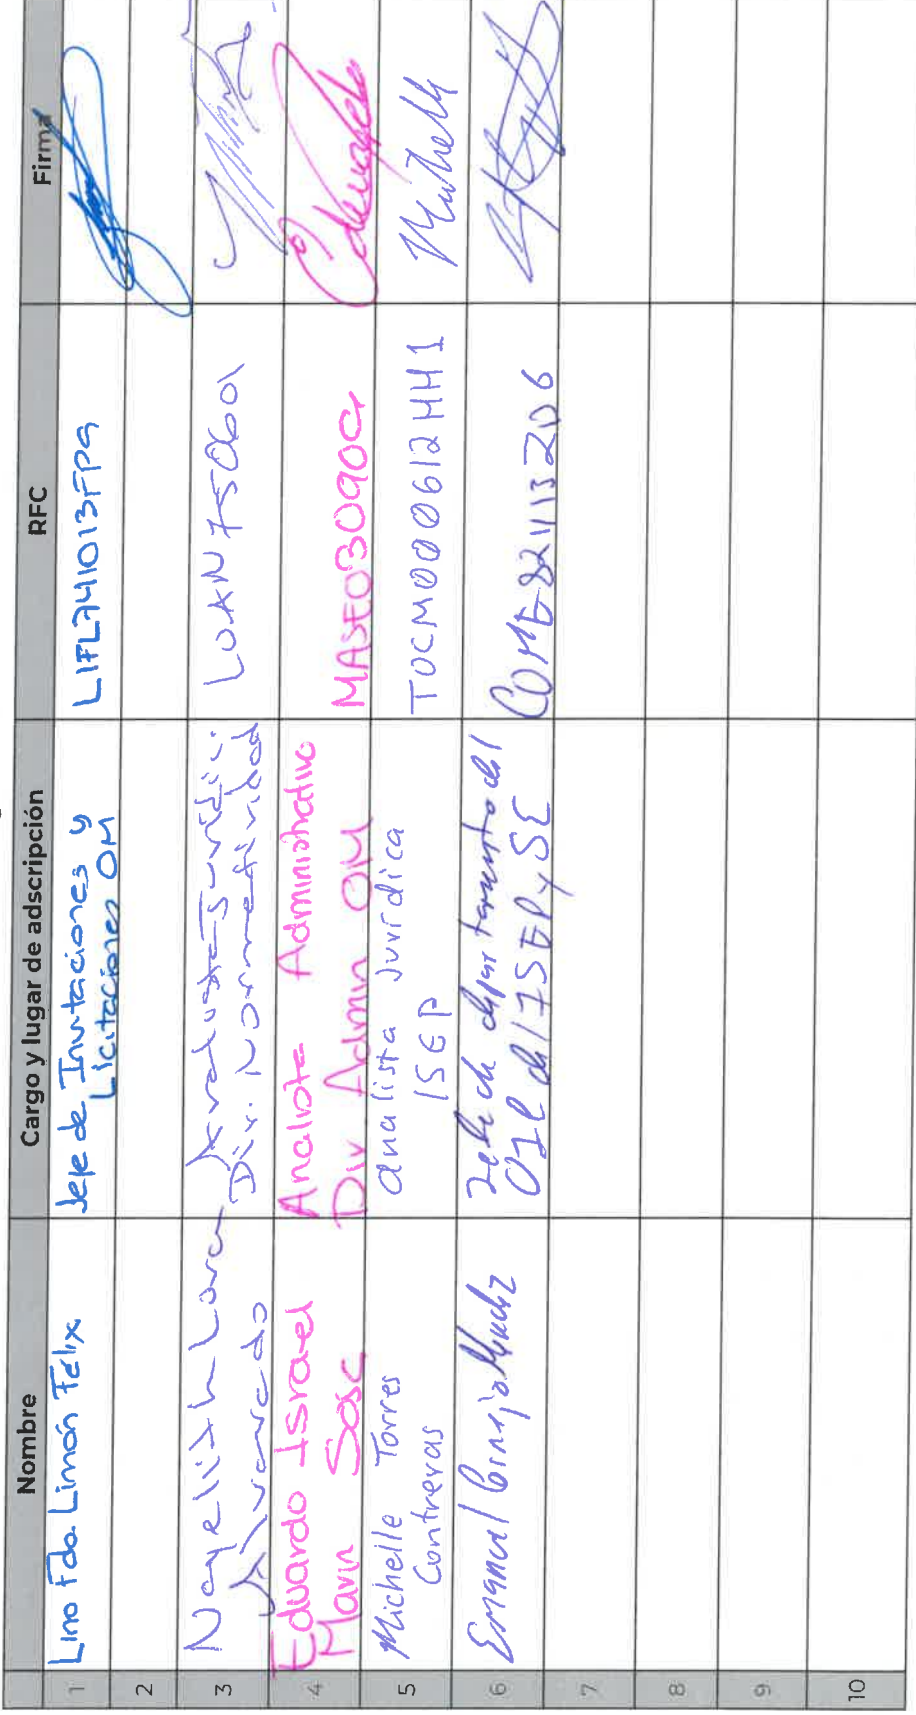 Nombre Cargo y lugar de adscripción RFC Firma
1 Lino Fdo. Limón Félix Jefe de Invitaciones y Licitaciones OM LIFL741013FP9
2
3 Nayellith Lara Alvarado Analista Jurídico Dir. Normatividad LOAN750601
4 Eduardo Israel Marin Sosc Analista Administrativo Div Admin OM MASE03090G
5 Michelle Torres Contreras analista Jurídica ISEP TOCM000612HH1 Michelle
6 Emanuel Cornejo Jefe de departamento del OIC del ISEP y SE COME821113ZD6
7
8
9
10